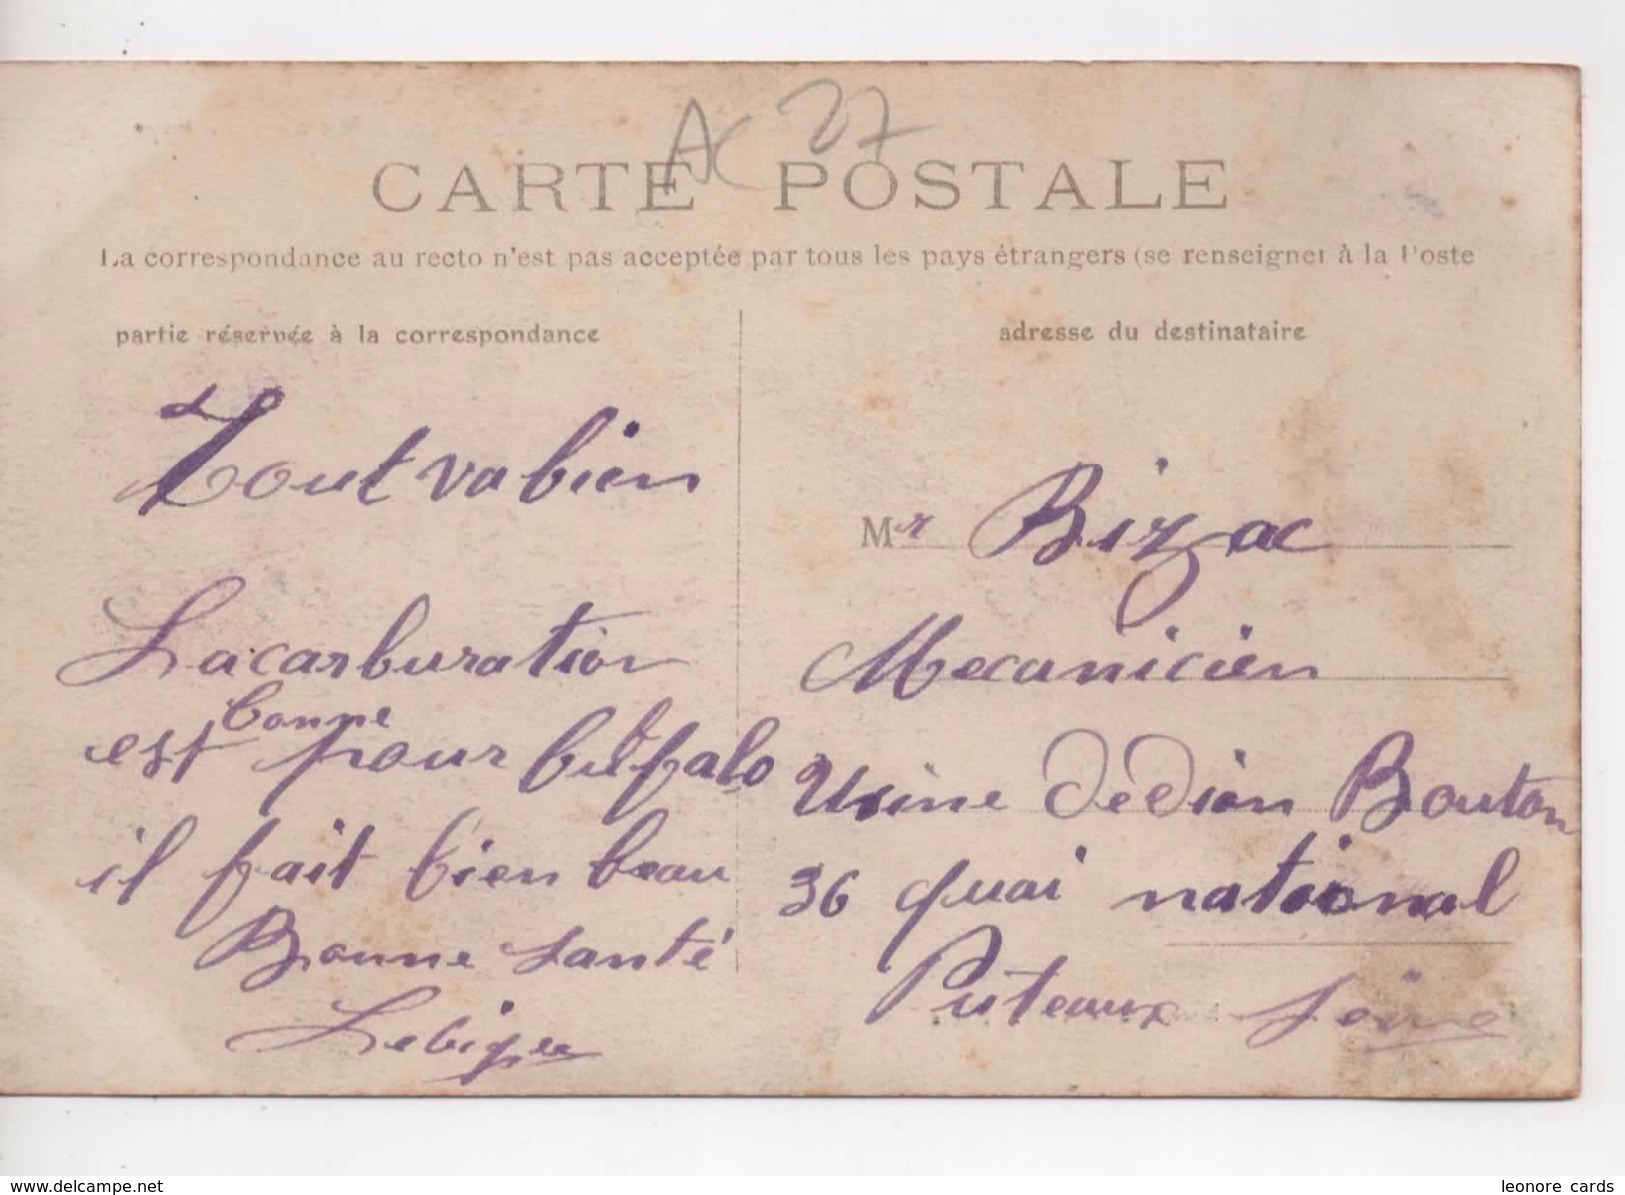 AC 27
CARTE POSTALE
La correspondance au recto n'est pas acceptée par tous les pays étrangers (se renseigner à la Poste
partie réservée à la correspondance
Tout va bien
La carburation
est bonne pour bufalo
il fait bien beau
Bonne santé
adresse du destinataire
Mr Bizac
Mecanicien
Usine DeDion Bouton
36 quai national
Puteaux Seine
www.delcampe.net
leonore cards